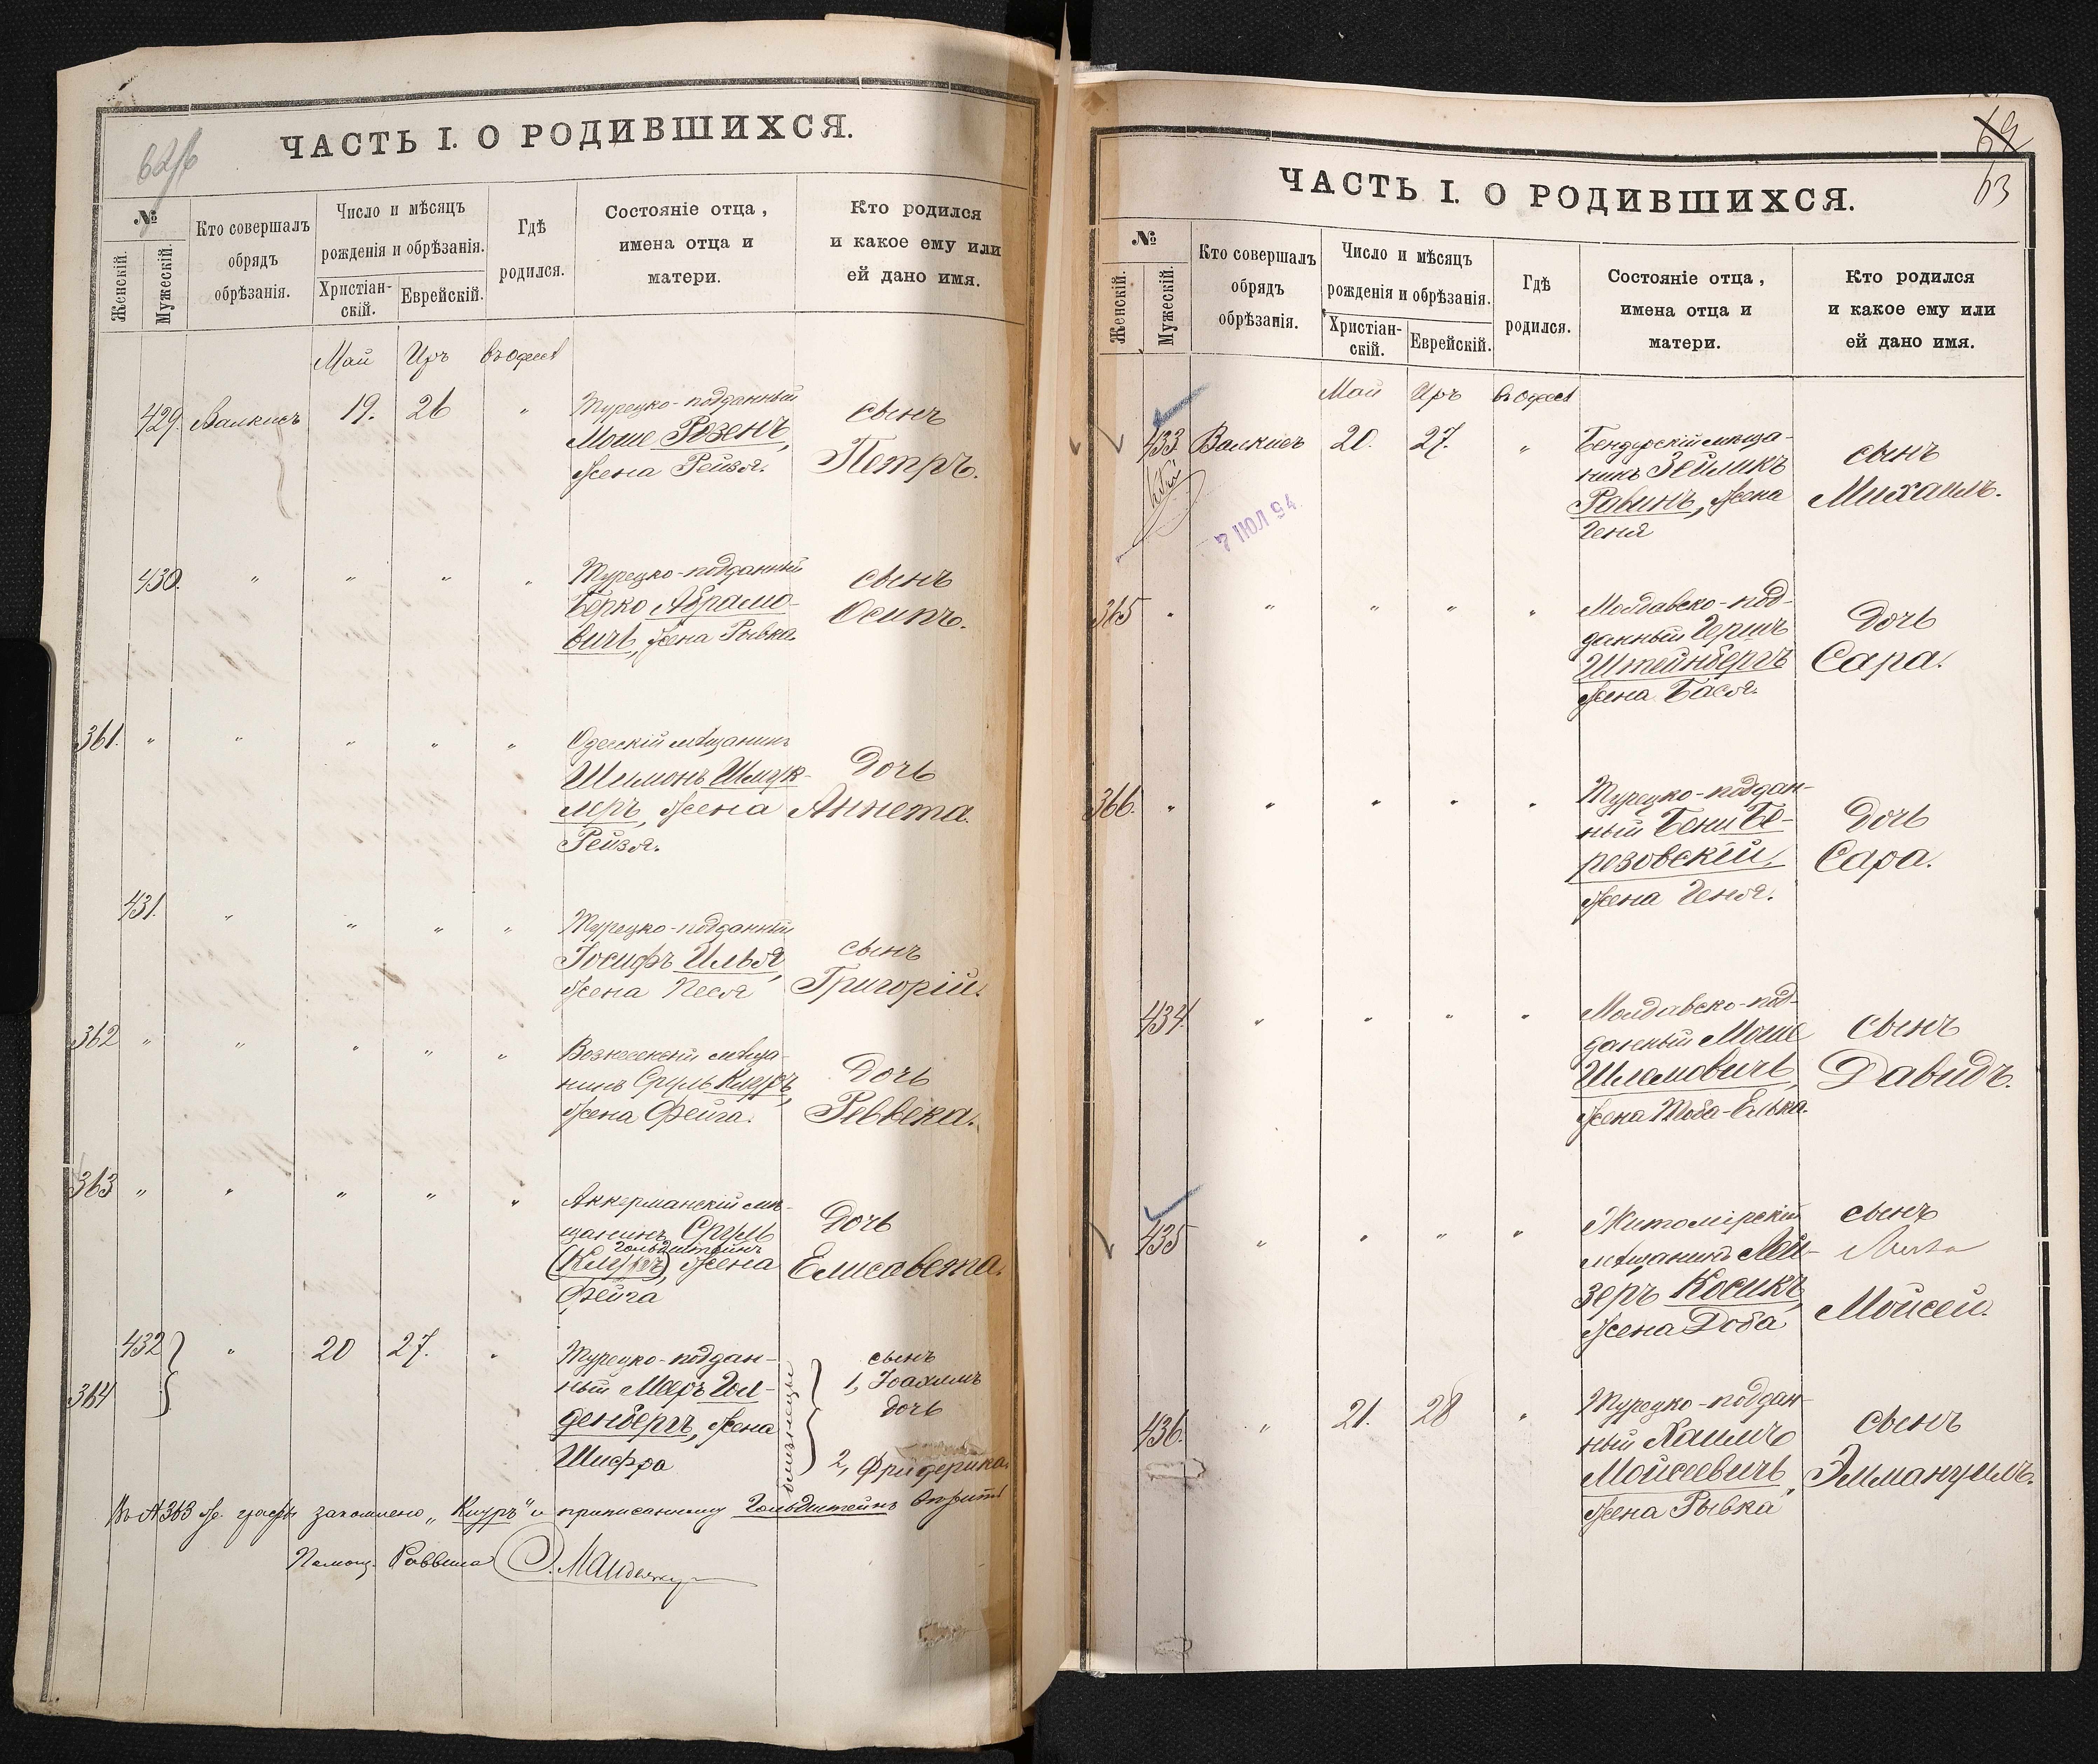 62/b
ЧАСТЬ I. О РОДИВШИХСЯ.
№
Женскій.
Мужескій.
Кто совершалъ
обрядъ
обрѣзанія.
Число и мѣсяцъ
рожденія и обрѣзанія.
Христіан-
скій.
Еврейскій.
Гдѣ
родился.
Состояніе отца,
имена отца и
матери.
Кто родился
и какое ему или
ей дано имя.
Май Іръ въ Одессѣ
429. Валкисъ 19. 26 "
Турецко-подданный
Моше Розенъ,
жена Рейзя.
сынъ
Петръ.
430. " " " "
Турецко-подданный
Берко Абрамо-
вичъ, жена Рывка
сынъ
Осипъ.
361. " " " " "
Одесскій мѣщанинъ
Шимонъ Шмук-
леръ, жена
Рейзя.
дочь
Аннета.
431. " " " "
Турецко-подданный
Іосифъ Илья,
жена Песя
сынъ
Григорій.
362 " " " " "
Вознесенскій мѣща-
нинъ Сруль Клугъ,
жена Фейга.
дочь
Ревека.
363 " " " " "
Аккерманскій мѣ-
щанинъ Сруль
Гольдштейнъ
жена
Фейга
дочь
Елисавета.
432 " 20 27. "
364
Турецко-поддан-
ный Мееръ Гол-
денбергъ, жена
Шифра
близнецы
сынъ
1, Іоахимъ
дочь
2, Фридерика.
Въ № 363 графы "и приписанному Гольдштейнъ вѣрить
Помощ. Раввина
62
63
ЧАСТЬ I. О РОДИВШИХСЯ.
№
Женскій.
Мужескій.
Кто совершалъ
обрядъ
обрѣзанія.
Число и мѣсяцъ
рожденія и обрѣзанія.
Христіан-
скій.
Еврейскій.
Гдѣ
родился.
Состояніе отца,
имена отца и
матери.
Кто родился
и какое ему или
ей дано имя.
Май Іръ въ Одессѣ
433 Валкисъ 20. 27. "
7 ІЮЛ 94.
Бендерскій мѣща-
нинъ Зейликъ
Рабинъ, жена
Геня
сынъ
Михаилъ.
365 " " " " "
Молдавско-под-
данный Гершъ
Штейнбергъ
жена Бася.
дочь
Сара.
366. " " " " "
Турецко-поддан-
ный Бени Бе-
резовскій,
жена Геня.
дочь
Сара.
434. " " " "
Молдавско-под-
данный Моше
Шлемовичъ,
жена Тоба-Елька.
сынъ
Давидъ.
435 " " " "
Житомірскій
мѣщанинъ Лей-
зеръ Косикъ,
жена Доба
сынъ
Мойсей.
436. " 21. 28 "
Турецко-поддан-
ный Хаимъ
Мойсеевичъ,
жена Рывка
сынъ
Эммануилъ.